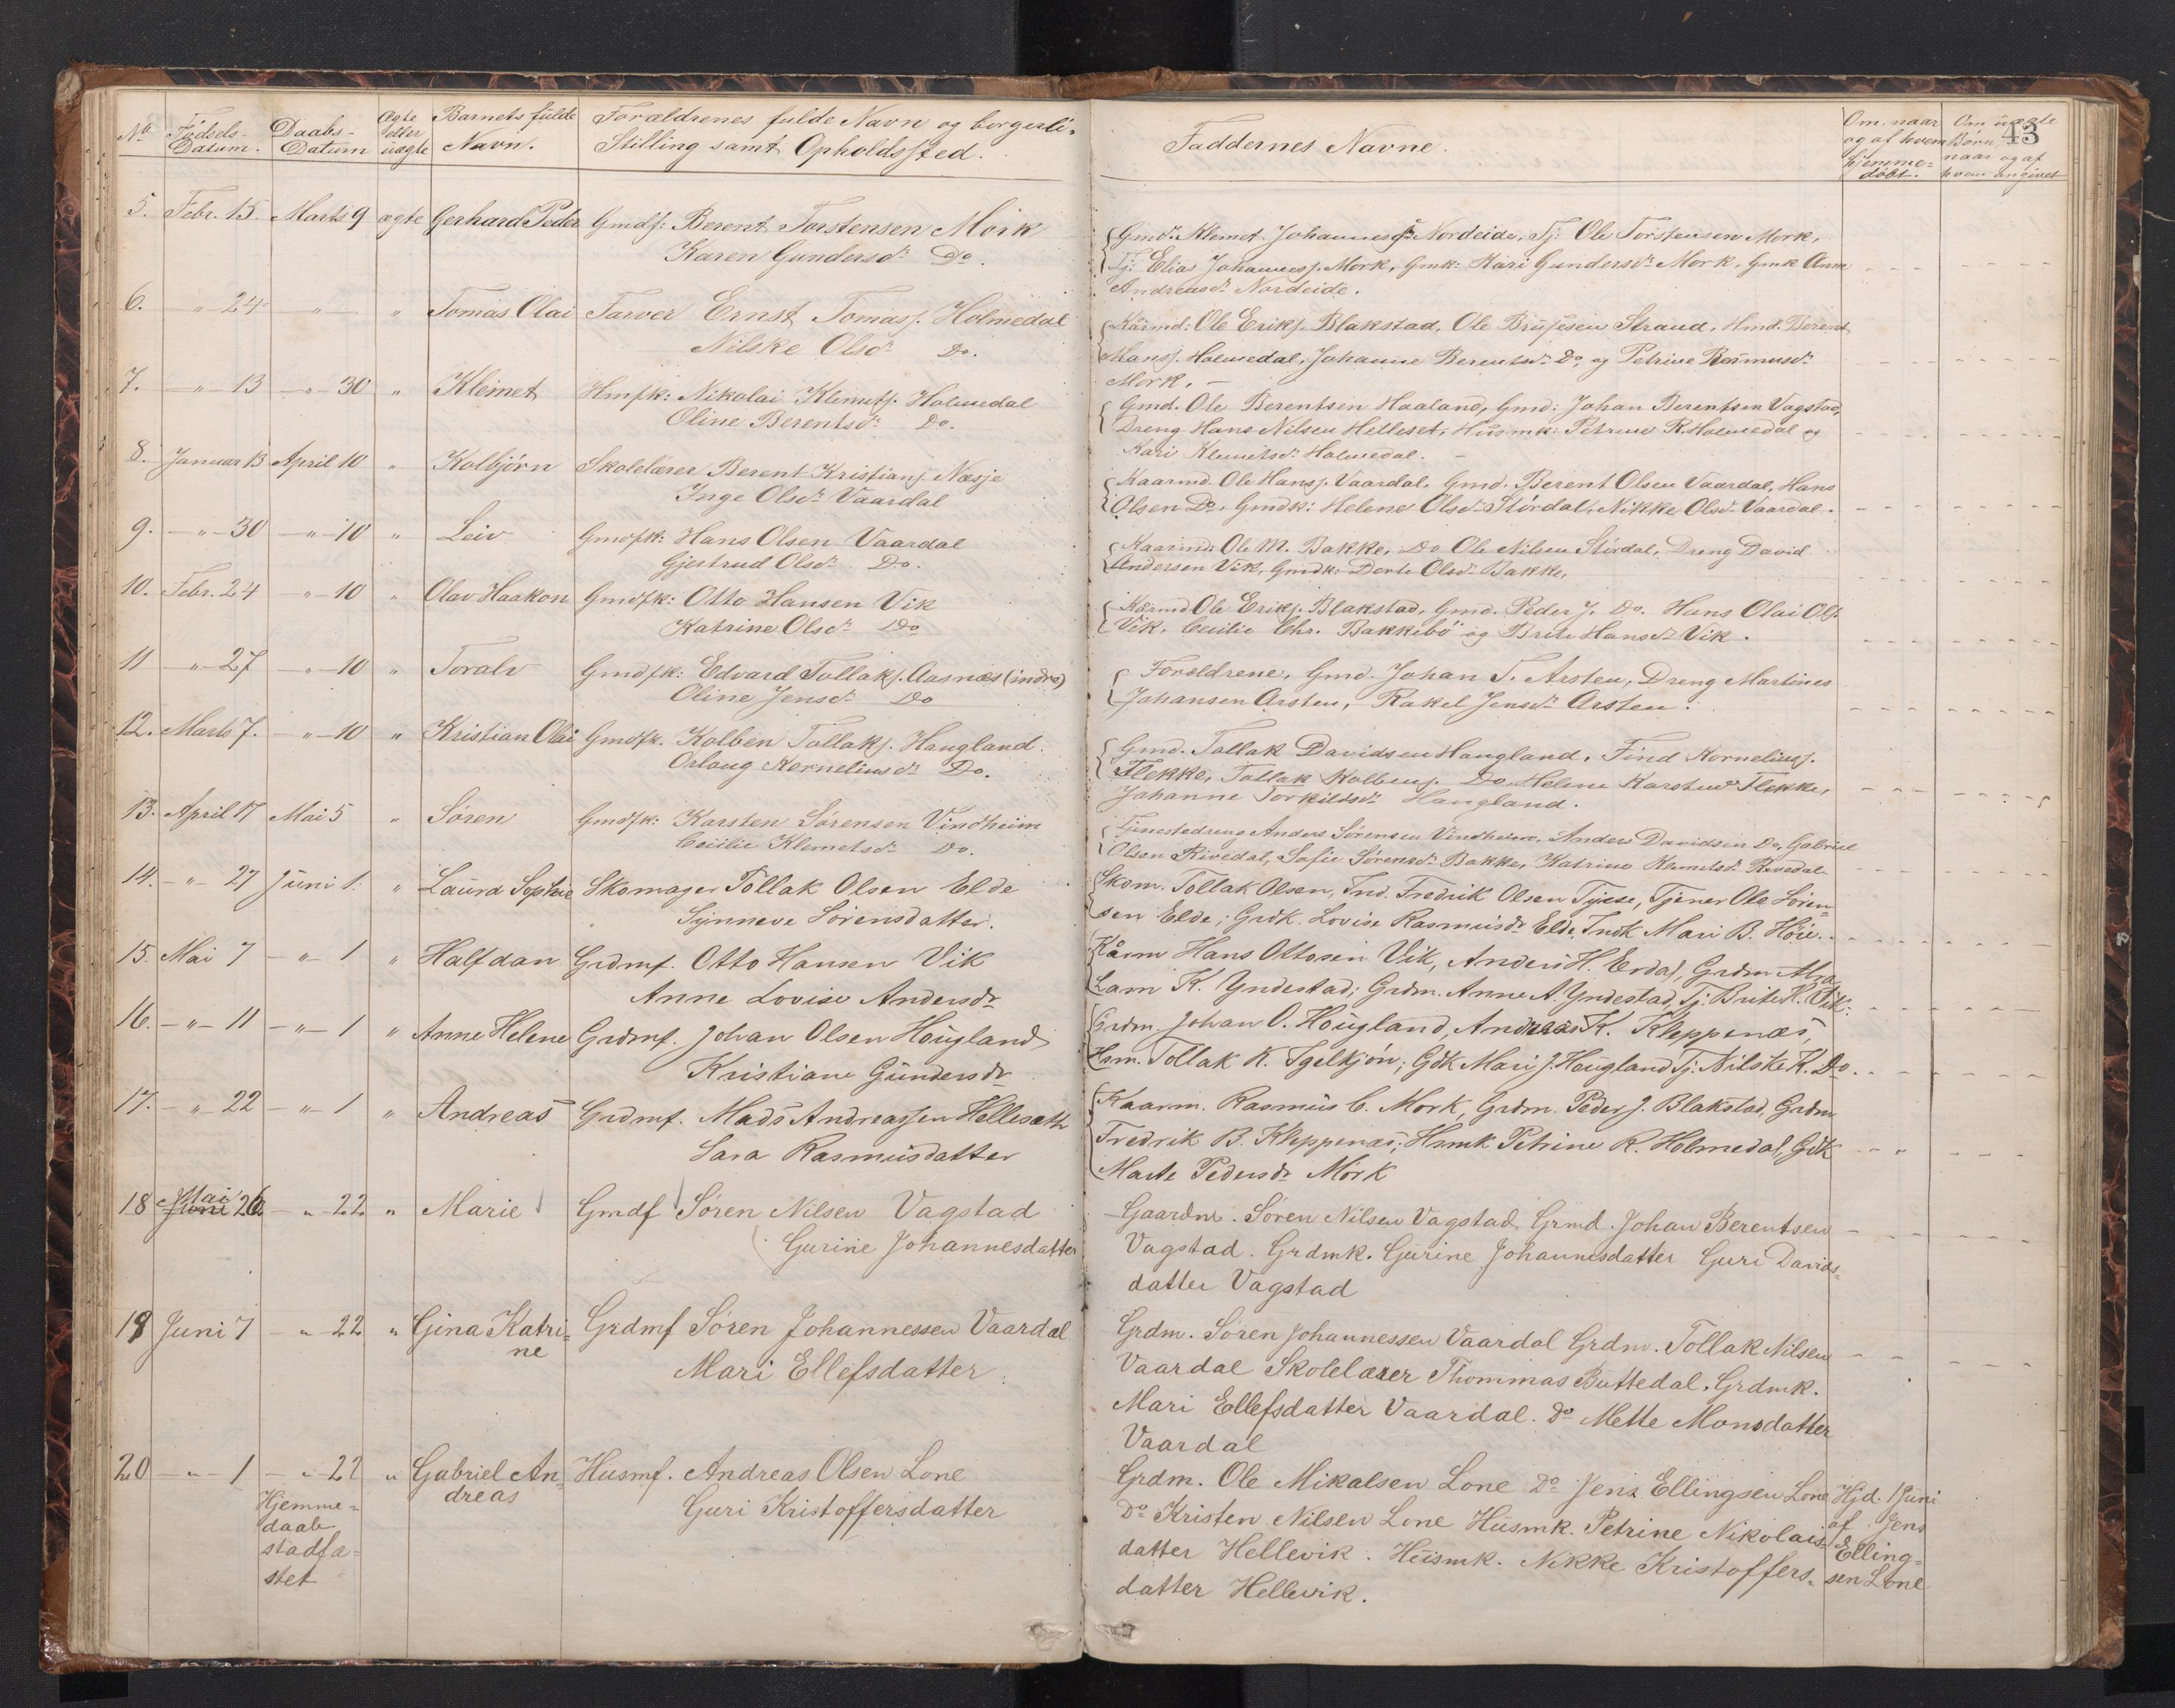 No Fødsels- Datum. Daabs- Datum Ægte eller uægte Barnets fulde Navn. Forældrenes fulde Navn og borgerli- Stilling samt Opholdssted.
Faddernes Navne. Om, naar og af hvem hjemme= døbt. Om uægte Børn, naar og af hvem angivet
43
5. Febr. 15. Marts 9 ægte Gerhard Peder Gmdf: Berent Torstensen Mörk
Karen Gundersdr Do.
Gmdn. Klemet Johannesen Nordeide, Tj: Ole Torstensen Mork,
Tj: Elias Johannesf. Mork, Gmk: Kari Gundersdr Mork, Gmk Anne
Andreasdr Nordeide.
6. " 24 " " Tomas Olai Farver Ernst Tomasf. Holmedal
Nilske Olsdr Do.
Kaarmd: Ole Erikf. Blakstad, Ole Strand, Hmd. Berent
Hansf. Holmedal, Johanne Berentsdr Do, og Petrine Rasmusdr
Mork. –
7. " 13 " 30 " Klemet Hmfk: Nikolai Klemetf. Holmedal
Oline Berentsdr Do.
Gmd. Ole Berentsen Haaland, Gmd: Johan Berentsen Vagstad,
Dreng Hans Nilsen Helleset, Husmk: Petrine R. Holmedal og
Kari Klemetsdr Holmedal. –
8. Januar 13 April 10 " Kolbjørn Skolelærer Berent Kristianf. Næsje
Inge Olsdr Vaardal
Kaarmd. Ole Hansf. Vaardal, Gmd. Berent Olsen Vaardal, Hans
Olsen Do, Gmdk: Helene Olsdr Stórdal, Nikke Olsdr Vaardal.
9. " 30 " 10 " Leiv Gmdfk: Hans Olsen Vaardal
Gjertrud Olsdr Do.
Kaarmd: Ole M. Bakke, Do Ole Nilsen Stórdal, Dreng David
Andersen Vik, Gmdk: Dorte Olsdr Bakke,
10. Febr. 24 " 10 " Olav Haakon Gmdfk: Otto Hansen Vik
Katrine Olsdr Do
Kaarmd Ole Erikf. Blakstad, Gmd. Peder J. Do. Hans Olai Olf.
Vik, Cecilie Chr. Bakkebö og Brite Hansdr Vik.
11 " 27 " 10 " Toralv Gmdfk: Edvard Tollakf. Aasnæs (indre)
Oline Jensdr Do
Forældrene, Gmd. Johan T. Arsten, Dreng Martines
Johansen Arsten, Rakel Jensdr Arsten.
12. Marts 7. " 10 " Kristian Olai Gmdfk. Kolben Tollakf. Haugland.
Orlaug Korneliusdr Do.
Gmd. Tollak Davidsen Haugland, Find Korneliusf.
Flekke, Tollak Kolbenf. Do, Helene Karstensdr Flekke,
Johanne Torkildsdr Haugland.
13. April 17 Mai 5 " Søren Gmdfk: Karsten Sørensen Vindheim
Cecilie Klemetsdr Do.
Tjenestedreng Anders Sørensen Vindheim, Anders Davidsen Do, Gabriel
Olsen Rivedal, Sofie Sørensdr Bakke, Katrine Klemetsdr Rivedal.
14. " 27 Juni 1. " Laura Sophie Skomager Tollak Olsen Elde
Synneve Sörensdatter.
Skom. Tollak Olsen, Ind. Fredrik Olsen Tysse, Tjener Ole Sören=
sen Elde; Grdk. Lovise Rasmusdr Elde, Indk Mari B. Höie.
15. Mai 7 " 1 " Halfdan Grdmf. Otto Hansen Vik
Anne Lovise Andersdr
Kårm Hans Ottosen Vik, Anders H. Erdal, Grdm Abra=
ham K. Yndestad; Grdm. Anne A. Yndestad, Tj: Brite H. Vik.
16. " 11 " 1 " Anne Helene Grdmf. Johan Olsen Hougland
Kristiane Gundersdr
Grdm. Johan O. Hougland, Andreas K. Kleppenæs,
Hsm. Tollak K. Igelkjön; Gdk Mari J. Hougland Tj: Nilske K. Do.
17. " 22 " 1 " Andreas Grdmf. Mads Andreassen Hellesæth
Sara Rasmusdatter
Kaarm. Rasmus C. Mork, Grdm. Peder J. Blakstad, Grdm
Fredrik B. Kleppenæs; Hsmk Petrine R. Holmedal, Gdk
Marte Pedersdr Mörk
18 Mai Juni 26 " 22 " Marie Gmdf Søren Nilsen Vagstad
Gurine Johannesdatter
Gaardm. Søren Nilsen Vagstad Grmd. Johan Berentsen
Vagstad. Grdmk. Gurine Johannesdatter Guri Davids=
datter Vagstad
19 Juni 7 " 22 " Gina Katri= Grdmf Søren Johannessen Vaardal
ne Mari Ellefsdatter
Grdm. Søren Johannessen Vaardal Grdm. Tollak Nilsen
Vaardal Skolelærer Thommas Buttedal. Grdmk.
Mari Ellefsdatter Vaardal. Do Mette Monsdatter
Vaardal
20 " 1 " 22 " Gabriel An= Husmf. Andreas Olsen Lone
dreas Guri Kristoffersdatter
Hjemme=
daab
stadfæ=
stet
Grdm. Ole Mikalsen Lone Do Jens Ellingsen Lone
Do Kristen Nilsen Lone Husmk. Petrine Nikolais=
datter Hellevik. Husmk. Nikke Kristoffers=
datter Hellevik.
Hjd. 1 Juni
af Jens
Elling=
sen Lone